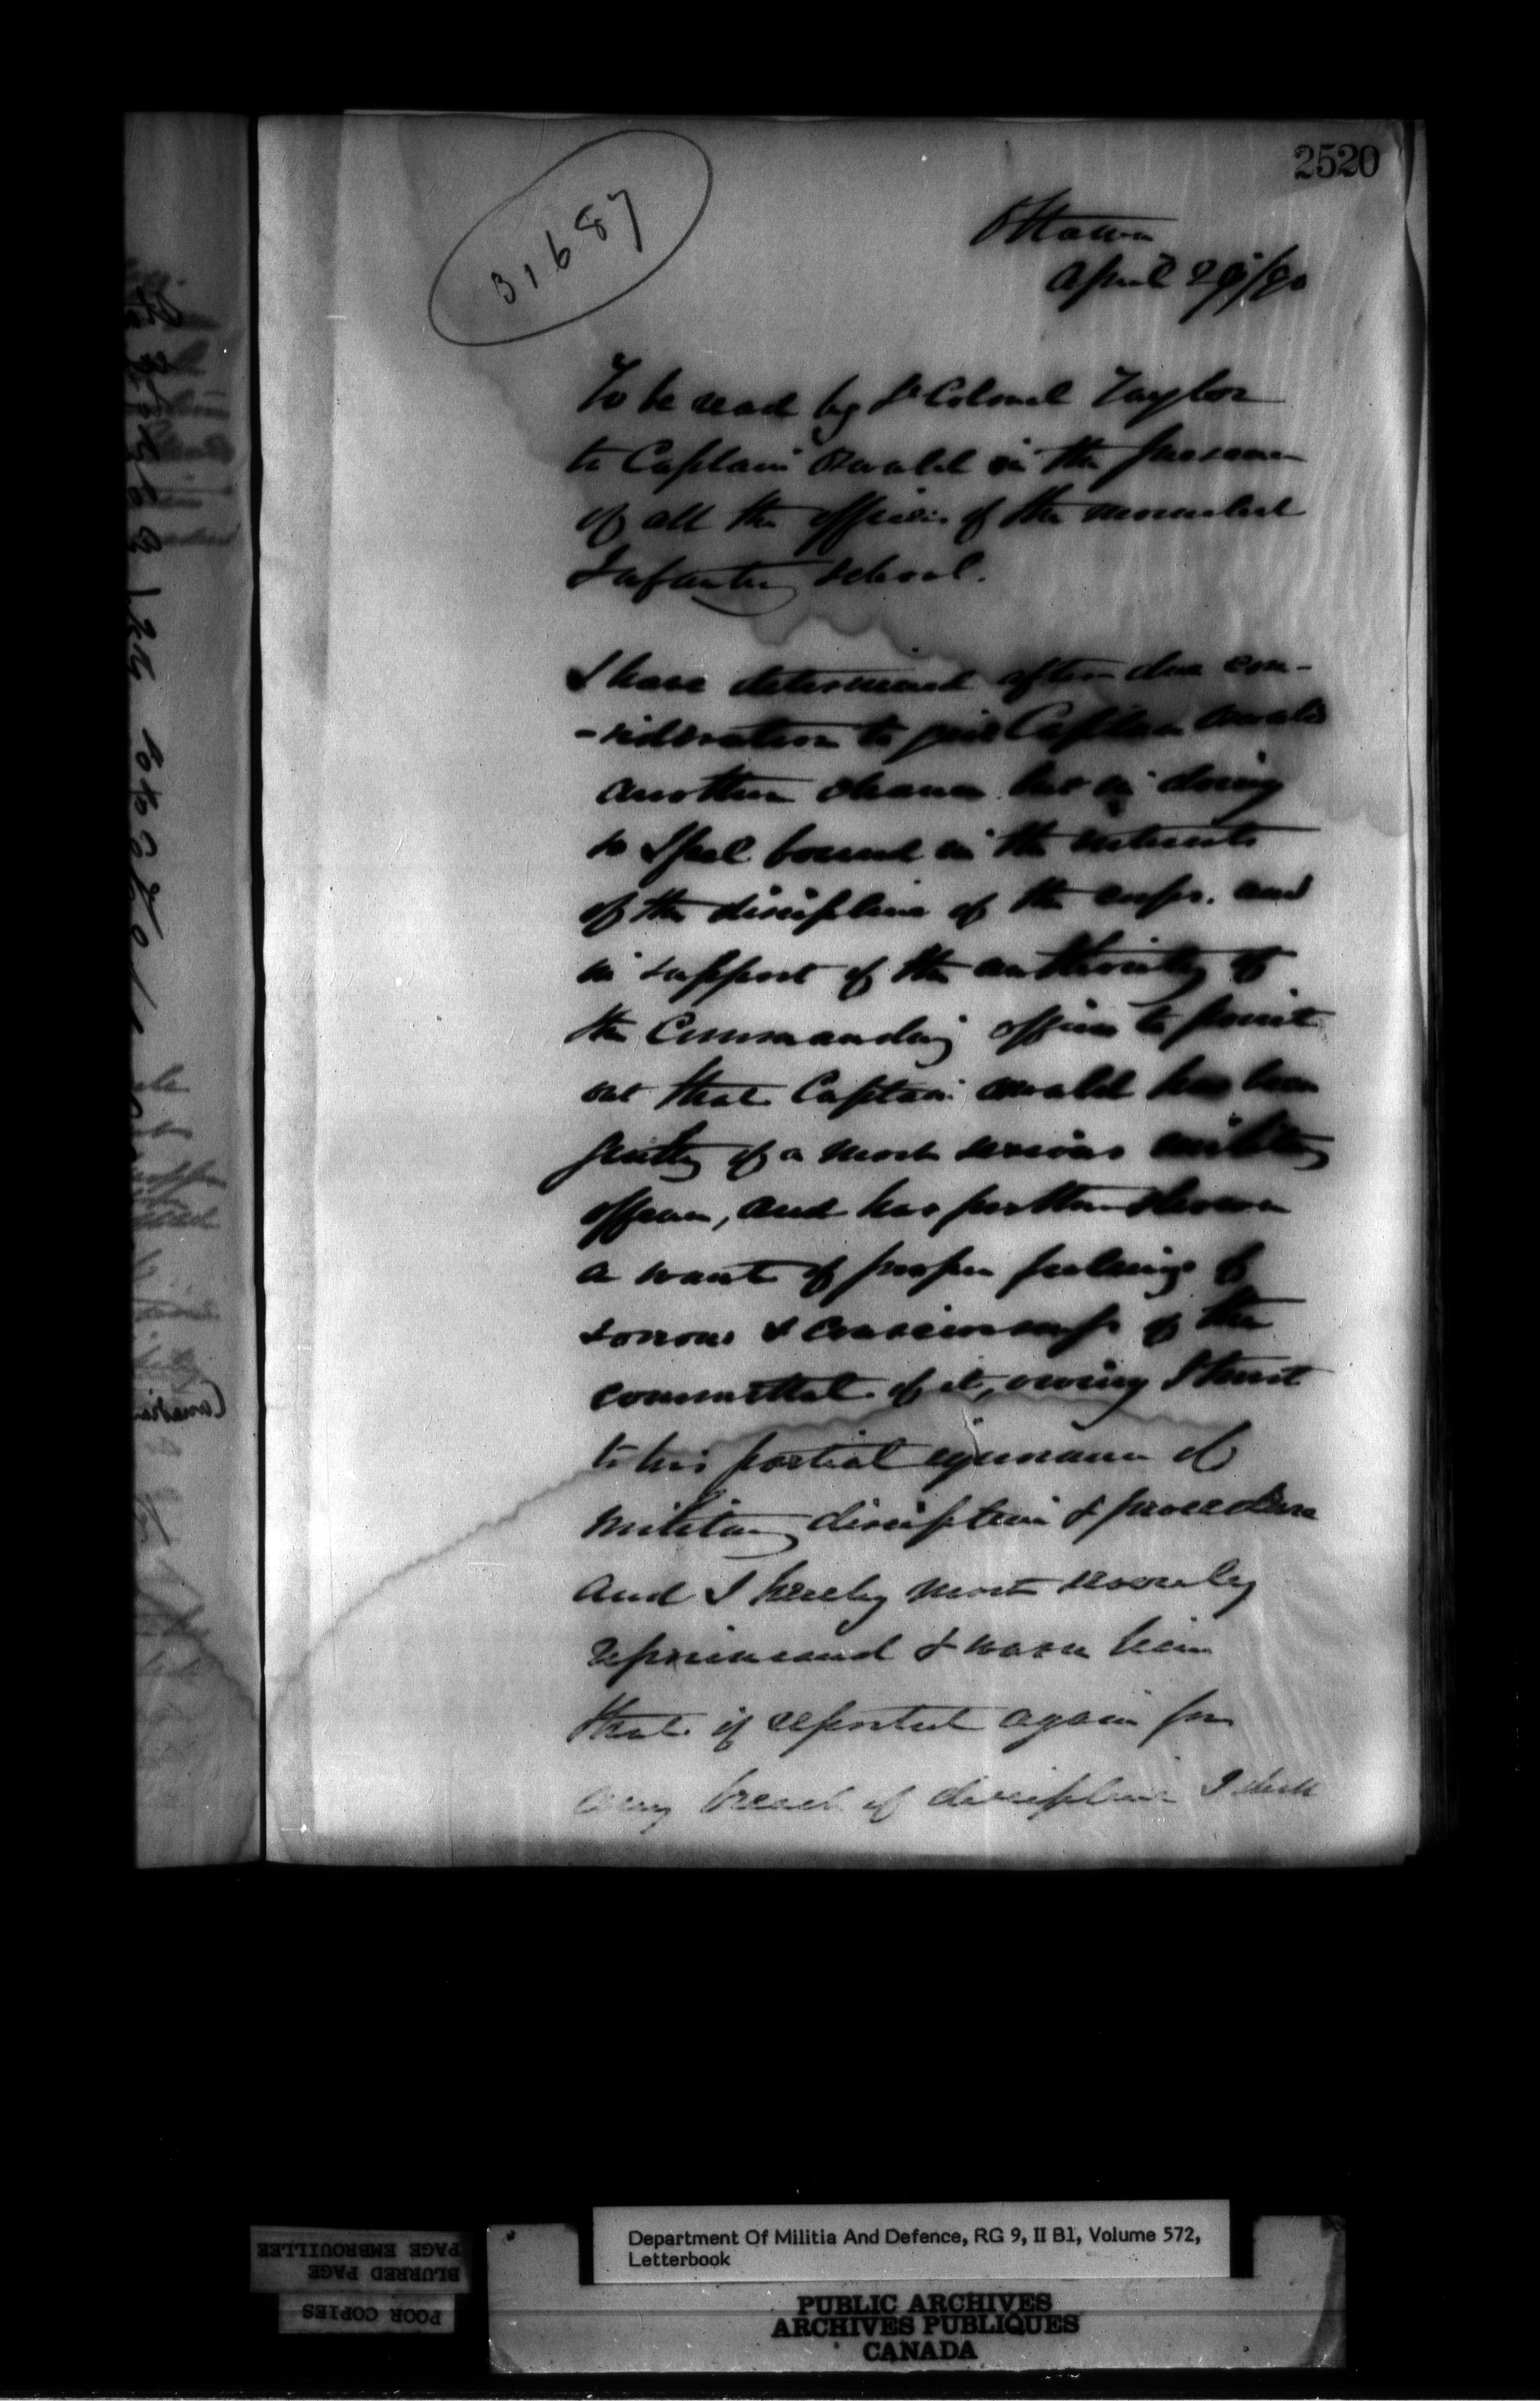 2520
31687
Ottawa
April 29/90
To be read by Lt Colonel Taylor
to Captain Oswald in the presence
of all the officers of the mounted
Infantry School.
I have determined after due con-
-sideration to give Captain Oswald
another chance but in doing
so I feel bound in the interests
of the discipline of the corps. and
in support of the authority of
the Commanding officer to point
out that Captain Oswald has been
guilty of a most serious military
offence, and has further shown
a want of proper feelings of
sorrow & consciousness of the
committal of it, owing I trust
to his partial ignorance of
military discipline & procedure
and I hereby most severely
reprimand & warn him
that if reported again for
any breach of discipline I shall
Canadian
Department Of Militia And Defence, RG 9, II B1, Volume 572,
Letterbook
PUBLIC ARCHIVES
ARCHIVES PUBLIQUES
CANADA
POOR COPIES
BLURRED PAGE
PAGE EMBROUILLEE